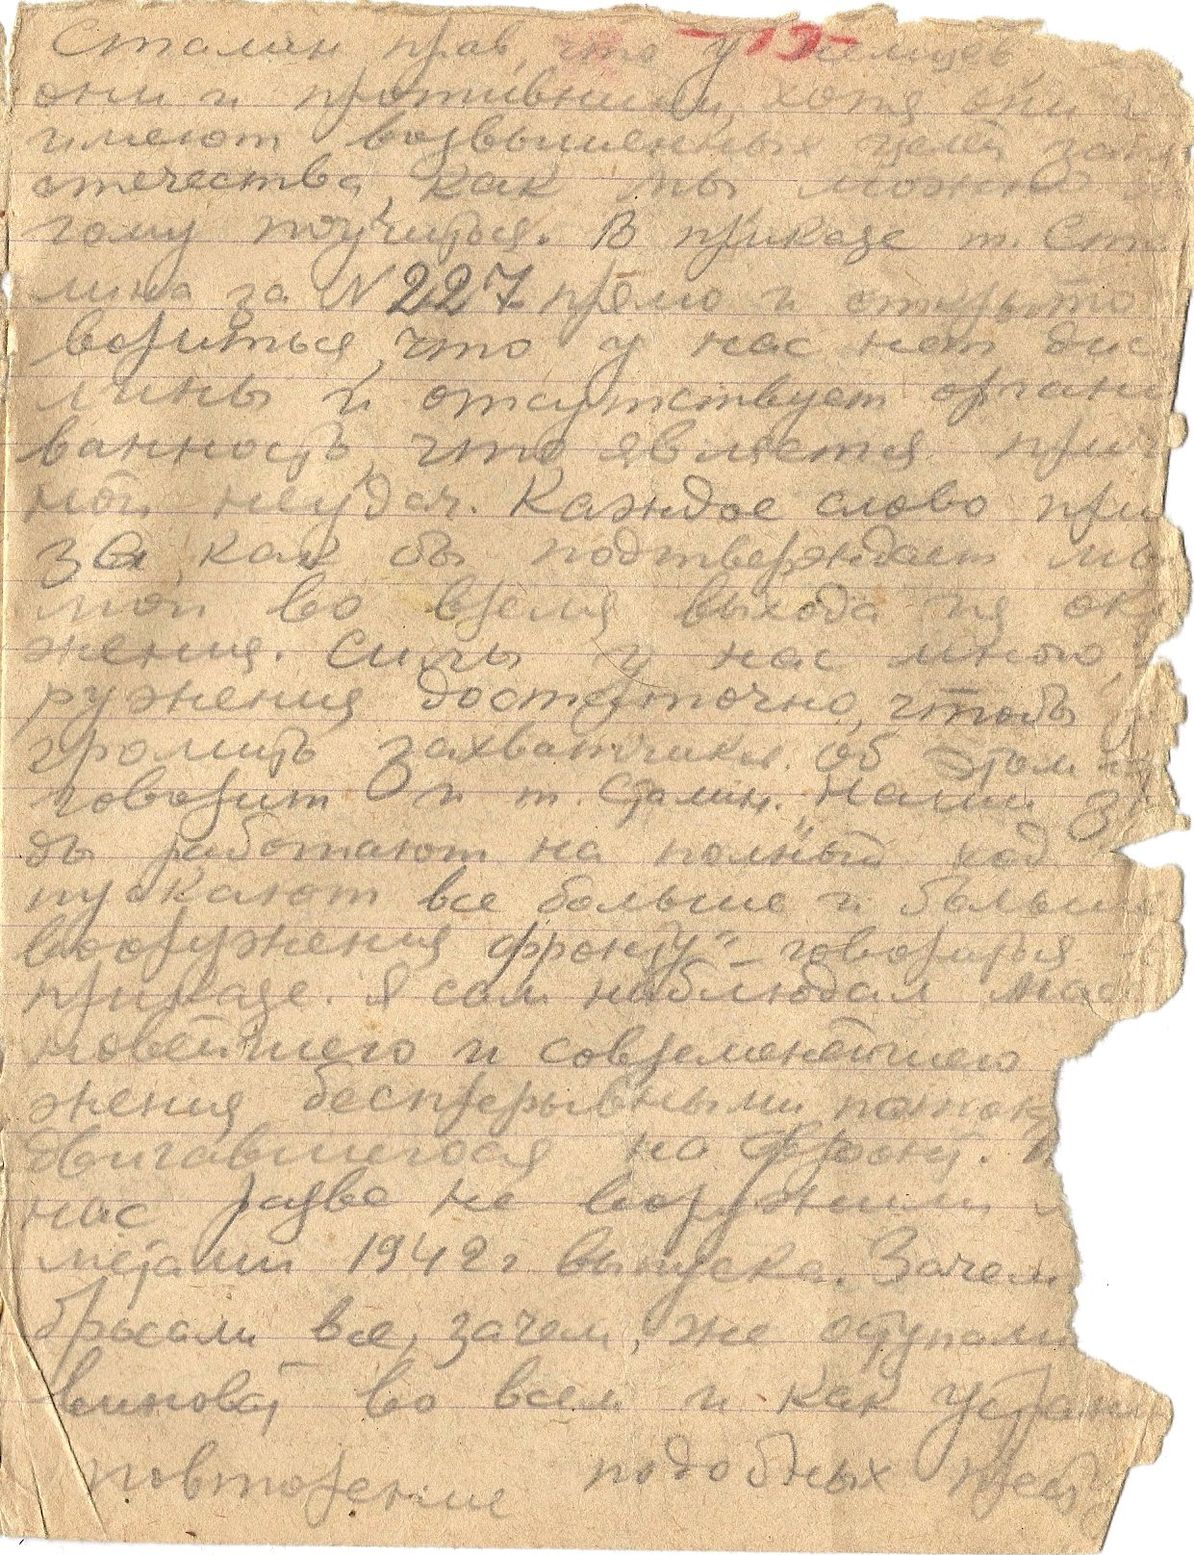 -15-
Сталин прав, что у немцев,
они и противники, хотя они
имеют возвышенных целей
отечества, как мы можно
гому поучиться. В приказе т. Ста
лина за N 227 прямо и открыто
вориться, что у нас нет дис
лины и отсутствует органи
ванность, что является прич
ной неудач. Каждое слово при
за, как бы подтверждает
мои во время выхода из окр
жения. Силы у нас много,
ружения достаточно, чтобы
громить захватчиков. Об этом
говорит и т. Сталин. „Наши
ды работают на полный ход
пускают все больше и больше
вооружения фронту" - говориться
приказе. Я сам наблюдал мас
новейшего и современейшего
жения бесперывными поток
двигавшегося на фронт.
нас разве не вооружили
метами 1942 г выпуска. Зачем
бросали все, зачем, же отупали
виноват во всем и как устрани
повторение подобных